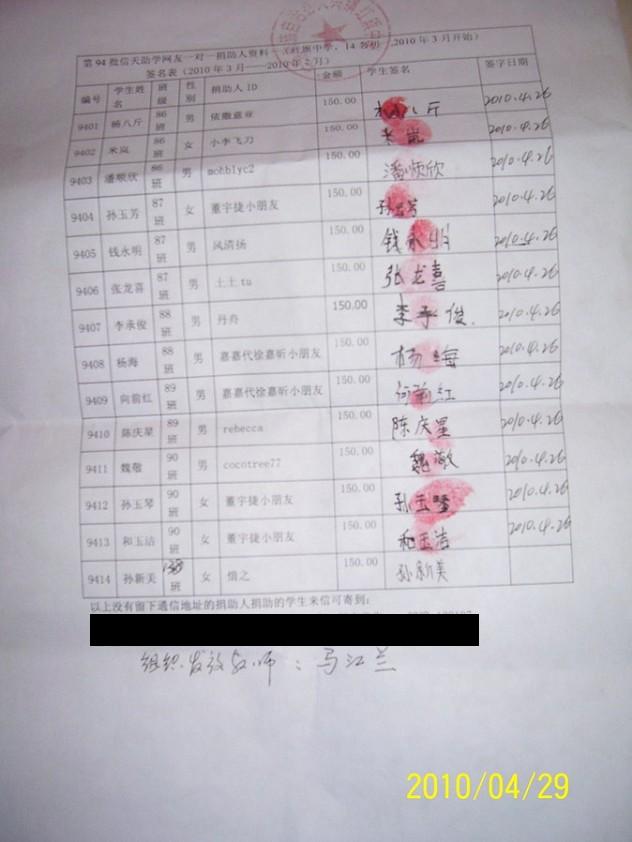 第94批信天助学网友一对一捐助人资料 中学,14名 ,2010年3月开始)
签名表(2010年3月——2010年 月)
编号 学生姓名 班级 性别 捐助人ID 金额 学生签名 签字日期
9401 杨八斤 86班 男 依 150.00 八斤 2010.4.26
9402 米岚 86班 女 小李飞刀 150.00 米岚 2010.4.26
9403 潘顺欣 86班 男 mohblyc2 150.00 潘顺欣 2010.4.26
9404 孙玉芳 87班 女 董宇捷小朋友 150.00 孙玉芳 2010.4.26
9405 钱永明 87班 男 风清扬 150.00 钱永明 2010.4.26
9406 张龙喜 87班 男 土土tu 150.00 张龙喜 2010.4.26
9407 李承俊 88班 男 丹舟 150.00 李承俊 2010.4.26
9408 杨海 88班 男 嘉嘉代徐嘉昕小朋友 150.00 杨海 2010.4.26
9409 向前红 89班 男 嘉嘉代徐嘉昕小朋友 150.00 向前红 2010.4.26
9410 陈庆星 89班 男 rebecca 150.00 陈庆星 2010.4.26
9411 魏敬 90班 男 cocotree77 150.00 魏敬 2010.4.26
9412 孙玉琴 90班 女 董宇捷小朋友 150.00 孙玉琴 2010.4.26
9413 和玉洁 90班 女 董宇捷小朋友 150.00 和玉洁 2010.4.26
9414 孙新美 138班 女 熠之 150.00 孙新美
以上没有留下通信地址的捐助人捐助的学生来信可寄到:
组织发放教师:马江兰
2010/04/29